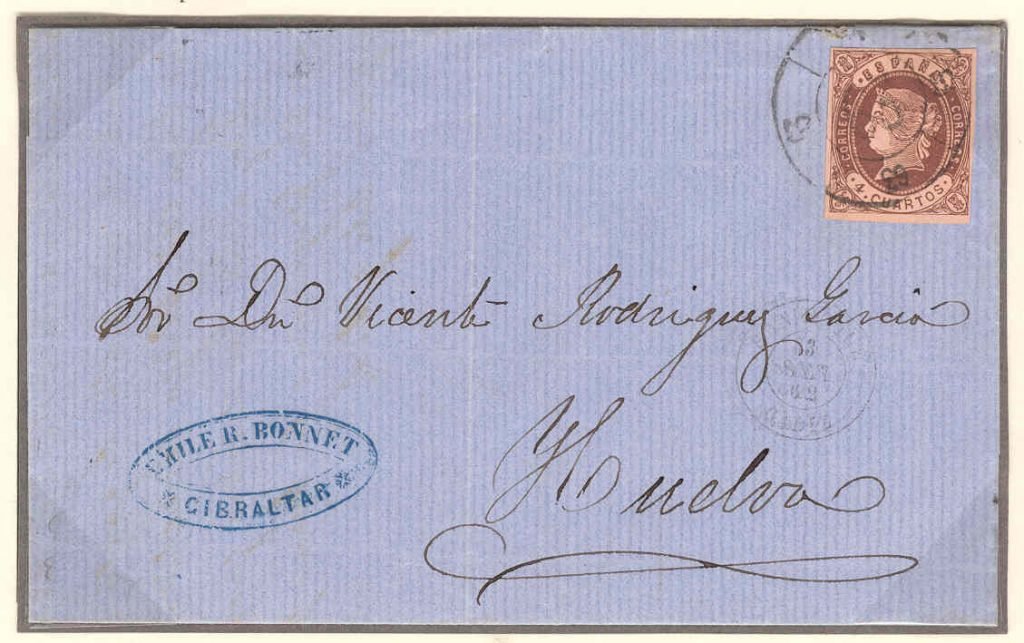 ESPAÑA
CORREOS
CORREOS
4 CUARTOS
63
Sor Dn Vicente Rodriguez Garcia
Huelva
EMILE R. BONNET
GIBRALTAR